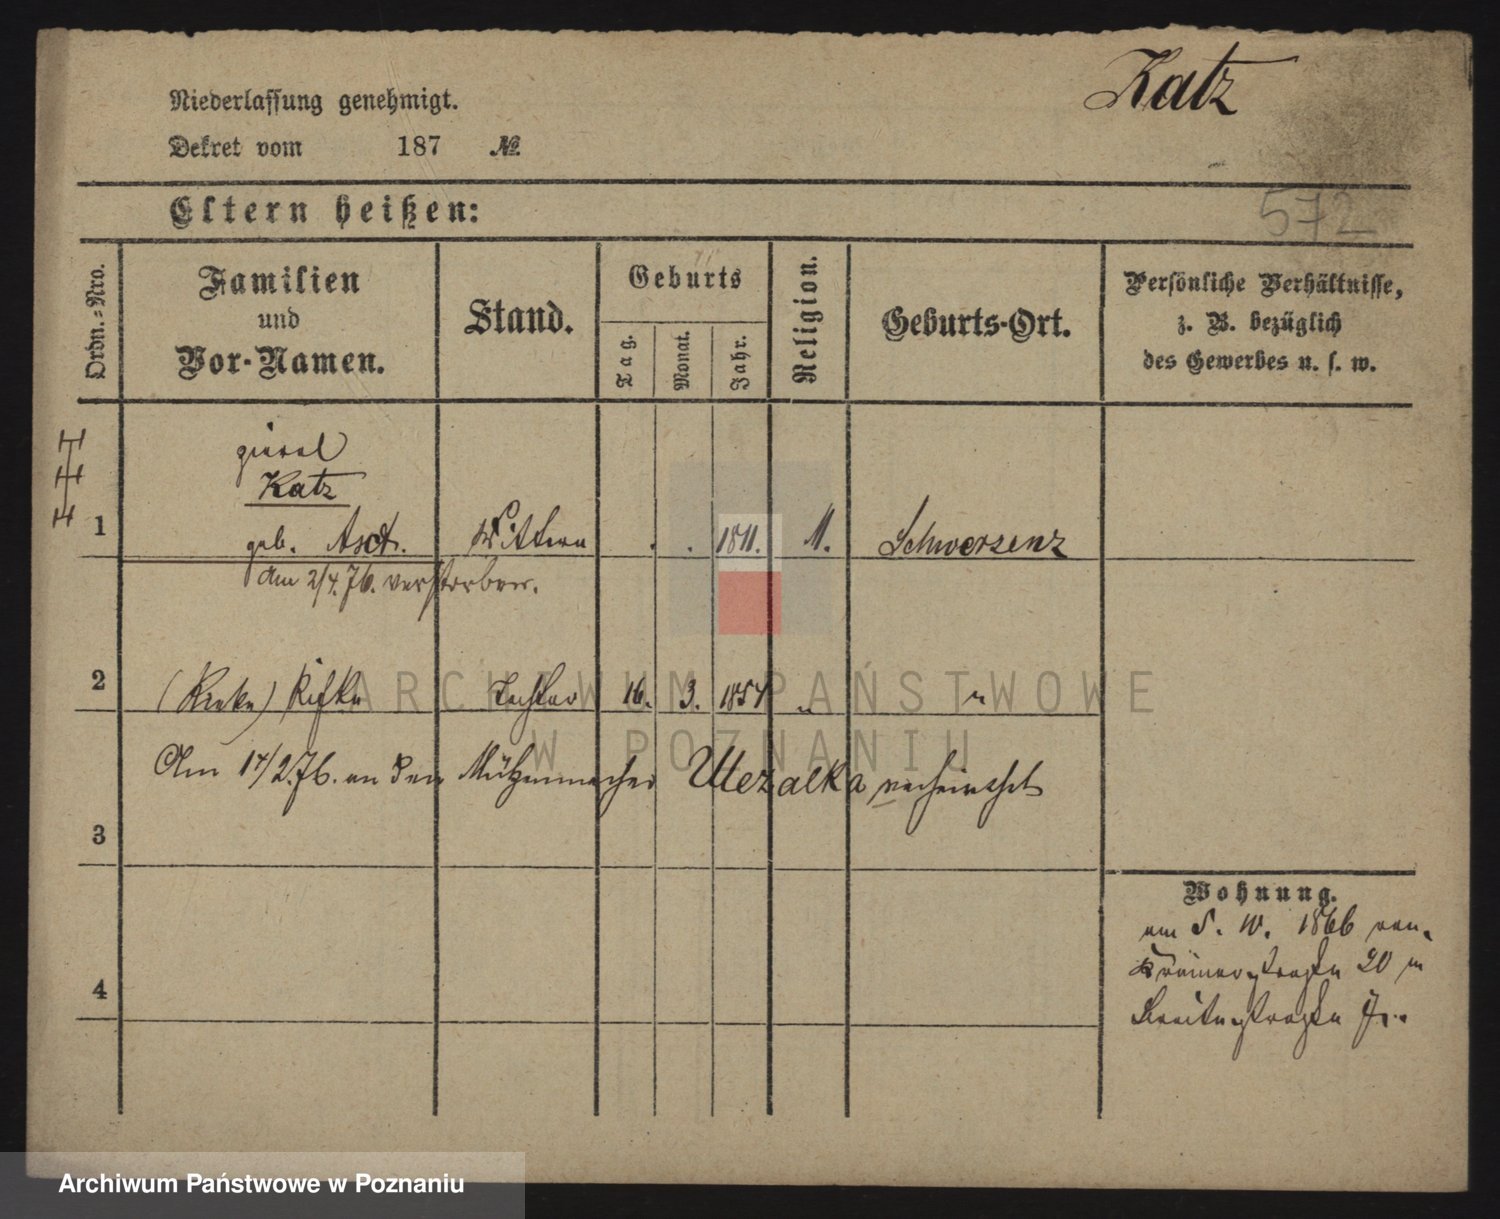 Katz
Niederlassung genehmigt.
Dekret vom 187 №
572
Eltern heißen:
Ordn.-Nro.
Familien
und
Vor-Namen.
Stand.
Geburts
Tag.
Monat.
Jahr.
Religion.
Geburts-Ort.
Persönliche Verhältnisse,
z. B. bezüglich
des Gewerbes u. s. w.
Katz
1 geb. Asch. Wittwe . . 1811. M. Schwersenz
Am 2/4. 76. verstorben.
2 Rifke Tochter 16. 3. 1854 " "
Am 17/2. 76. an den Mützenmacher verheirathet
3
Wohnung.
am 5. 10. 1866 von
Krämerstraße 20 n
Breitestraße
4
ARCHIWUM PAŃSTWOWE
W POZNANIU
Archiwum Państwowe w Poznaniu